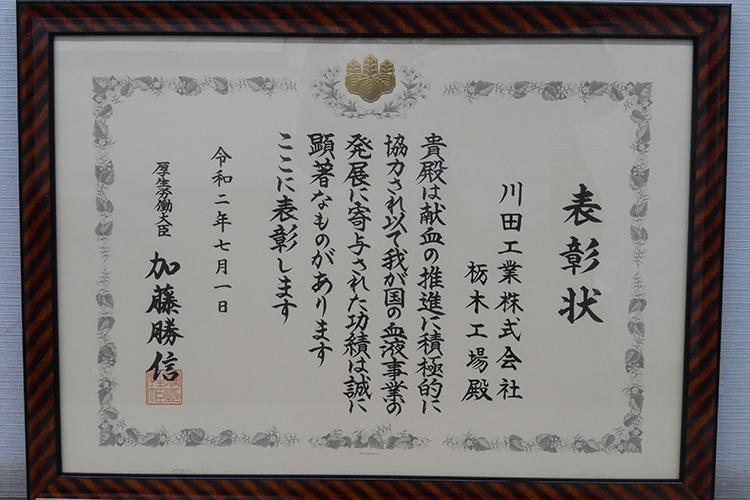 表彰状
川田工業株式会社
栃木工場殿
貴殿は献血の推進に積極的に
協力され以て我が国の血液事業の
発展に寄与された功績は誠に
顕著なものがあります
ここに表彰します
令和二年七月一日
厚生労働大臣
加藤勝信